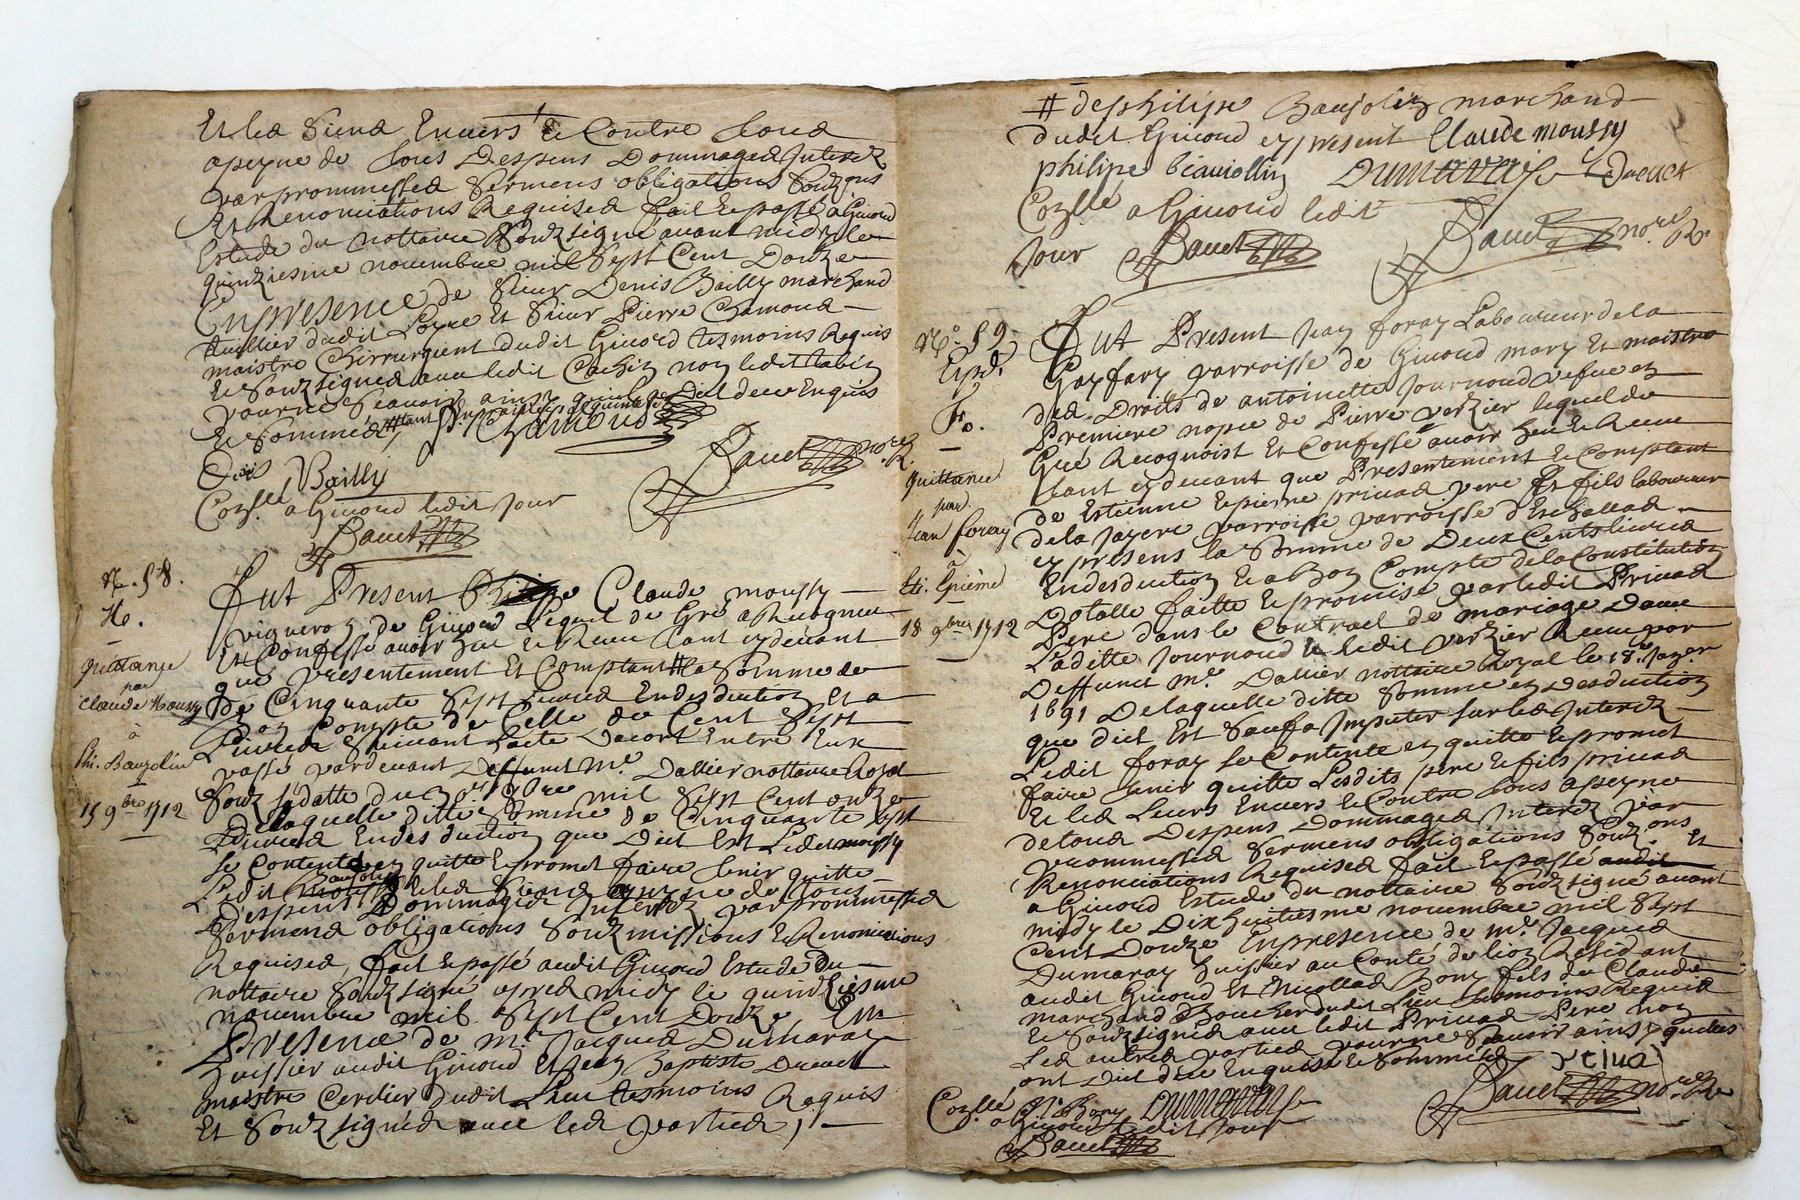 Et les siens Envers & Contre tous
apeyne de tous Despens Dommages Interest
par prommesses sermens obligations
Et Renonciations Requises fait & passé a Givord
Estude du nottaire souzsigné avant midy le
quinziesme novembre mil sept Cent Douze
En presence de sieur Denis Bailly marchand
dudit Loyre Et sieur Pierre Chamond
maistre Chirurgient dudit Givord tesmoins Requis
Et souzsignés avec ledit Cachin non ledit
pour ne scavoir ainsy
Et sommés
Chamoud
Bailly
Dauet
a Givord ledit Jour
Dauet
N. 58.
Ho.
quittance
par
Claude Moussy
à
Phi. Baujolin
15 9bre 1712
Fut Present Claude moussy
vigneron de Givord Lequel de Gré a Recogneu
Et Confessé avoir heu & Receu tant cydevant
que presentement Et Comptant # la somme de
de Cinquante sept Livres En desduction Et a
bon Compte de Celle de Cent sept
Livres suivant Lacte Entre Eux
passé pardevant Deffunct Me. Dallier nottaire Royal
souz sa datte du mil sept Cent onze
De laquelle ditte somme de Cinquante sept
Livres En desduction que Dict Est Ledit moussy
se Contente en quitte & promet faire tenir quitte
Ledit Baujolin & les siens apeyne de tous
despens Dommages Interest par prommesses
sermens obligations souzmissions & Renonciations
Requises, fait & passé audit Givord Estude du
nottaire souzsigné apres midy le quinziesme
novembre mil sept Cent Douze En
Presence de Me. Jacques Dumaray
huissier audit Givord Et Jean Baptiste Douet
maistre Cordier dudit Lieu tesmoins Requis
Et souzsignés avec les parties,
# de philipe Baujolin marchand
dudit Givord cy present Claude moussy
philipe beaujollin Dumaray Douet
a Givord ledit
Jour Dauet Dauet nore Re
No. 59.
Expd.
Fo.
quittance
par
Jean foray
à
18 9bre 1712
Fut Present Jean foray Laboureur de la
parroisse de Givord mary Et maistre
des Droits de antoinette Journoud vefve en
Premiere nopce de Pierre verzier lequel de
Gré Recognoist Et Confesse avoir heu & Receu
tant cydevant que Presentement & Comptant
de Estienne & pierre privad pere Et fils laboureur
parroisse d'Eschallas
cy presens la somme de Deux Cents livres
En desduction & a bon Compte de la Constitution
Dotalle faitte & promise par ledit Privad
Pere dans le Contract de mariage Dame
Laditte Journoud & ledit verzier Receu par
Deffunct Me. Dallier nottaire Royal le 18e.
1691 De laquelle ditte somme en desduction
que dict Est sauf a Imputer sur les Interest
Ledit foray se Contente en quitte & promet
faire tenir quitte Lesdits pere & fils privad
Et les Leurs Envers & Contre tous apeyne
de tous Despens Dommages Interest par
prommesses sermens obligations souz. ons Et
Renonciations Requises fait & passé audit
a Givord Estude du nottaire souzsigné avant
midy le Dixhuitiesme novembre mil sept
Cent Douze En presence de Me. Jacques
Dumaray huissier au Conté de lion Residant
audit Givord Et Nicollas Bony fils de Claude
marchand Boucher dudit Lieu tesmoins Requis
Et souzsignés avec ledit Privad Pere non
Les autres parties pour ne scavoir ainsy quelles
ont Dict de ce Enquises & sommées
privad
N. Bony Dumaray Dauet nore Re
a Givord ledit Jour
Dauet